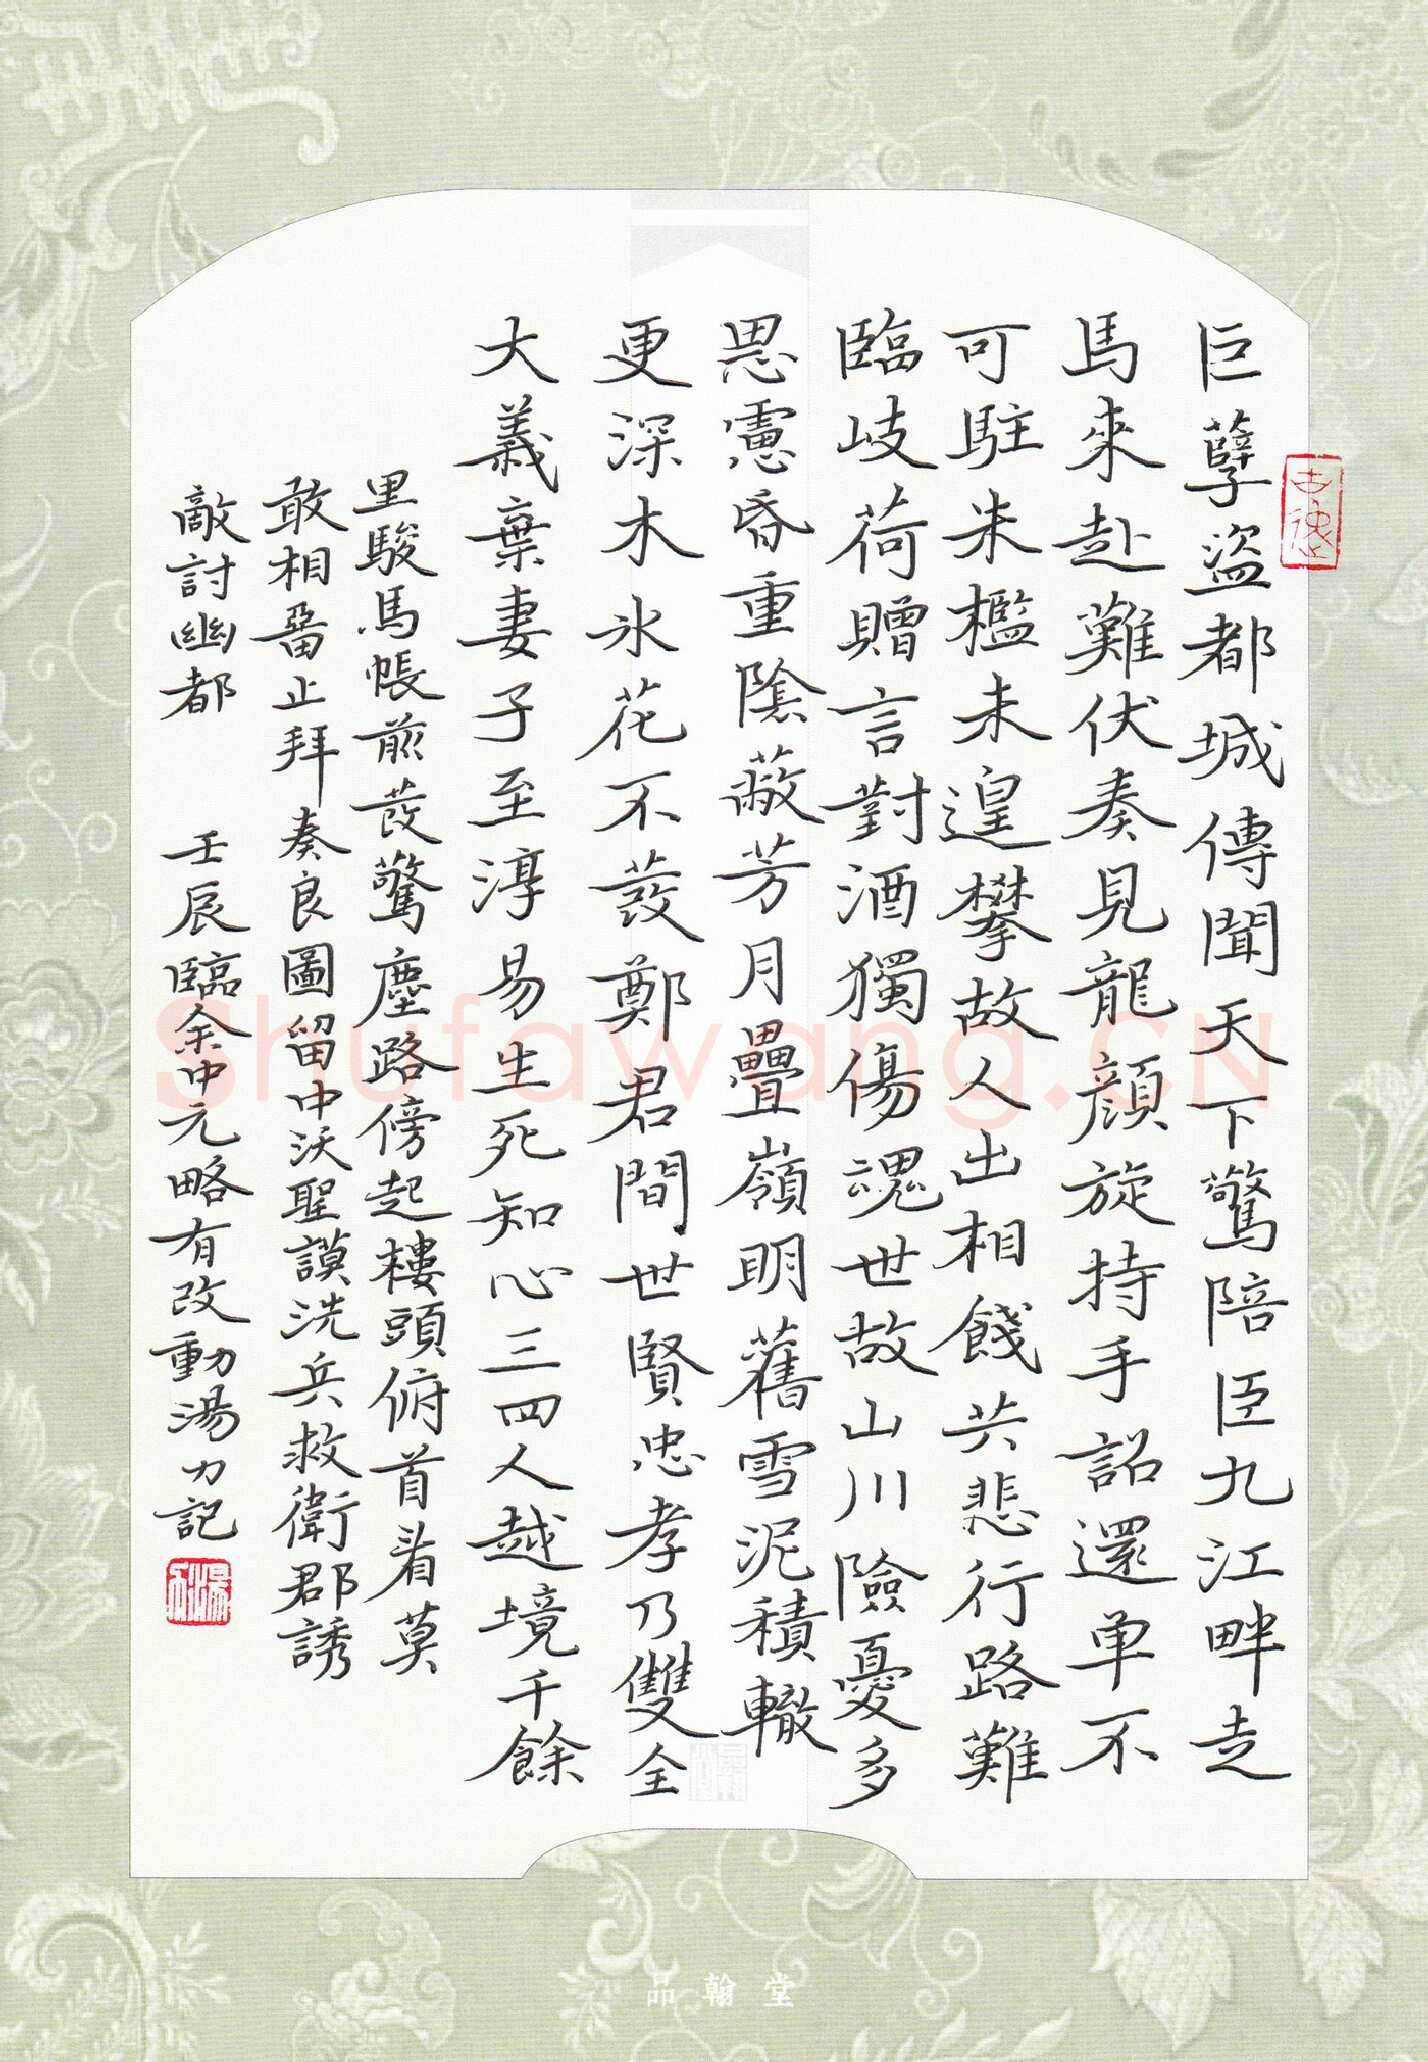 巨孽盜都城傳聞天下驚陪臣九江畔走
馬來赴難伏奏見龍顏旋持手詔還单不
可駐朱檻未遑攀故人出相餞共悲行路難
臨岐荷贈言對酒獨傷魂世故山川險憂多
思慮昏重陰蔽芳月疊嶺明舊雪泥積轍
更深木冰花不發鄭君間世賢忠孝乃雙全
大義棄妻子至淳易生死知心三四人越境千餘
里駿馬帳前發驚塵路傍起樓頭俯首看莫
敢相留止拜奏良圖留中沃聖謨洗兵救衛郡誘
敵討幽都 壬辰臨余中元略有改動湯力記
品翰堂
Shufawang.CN